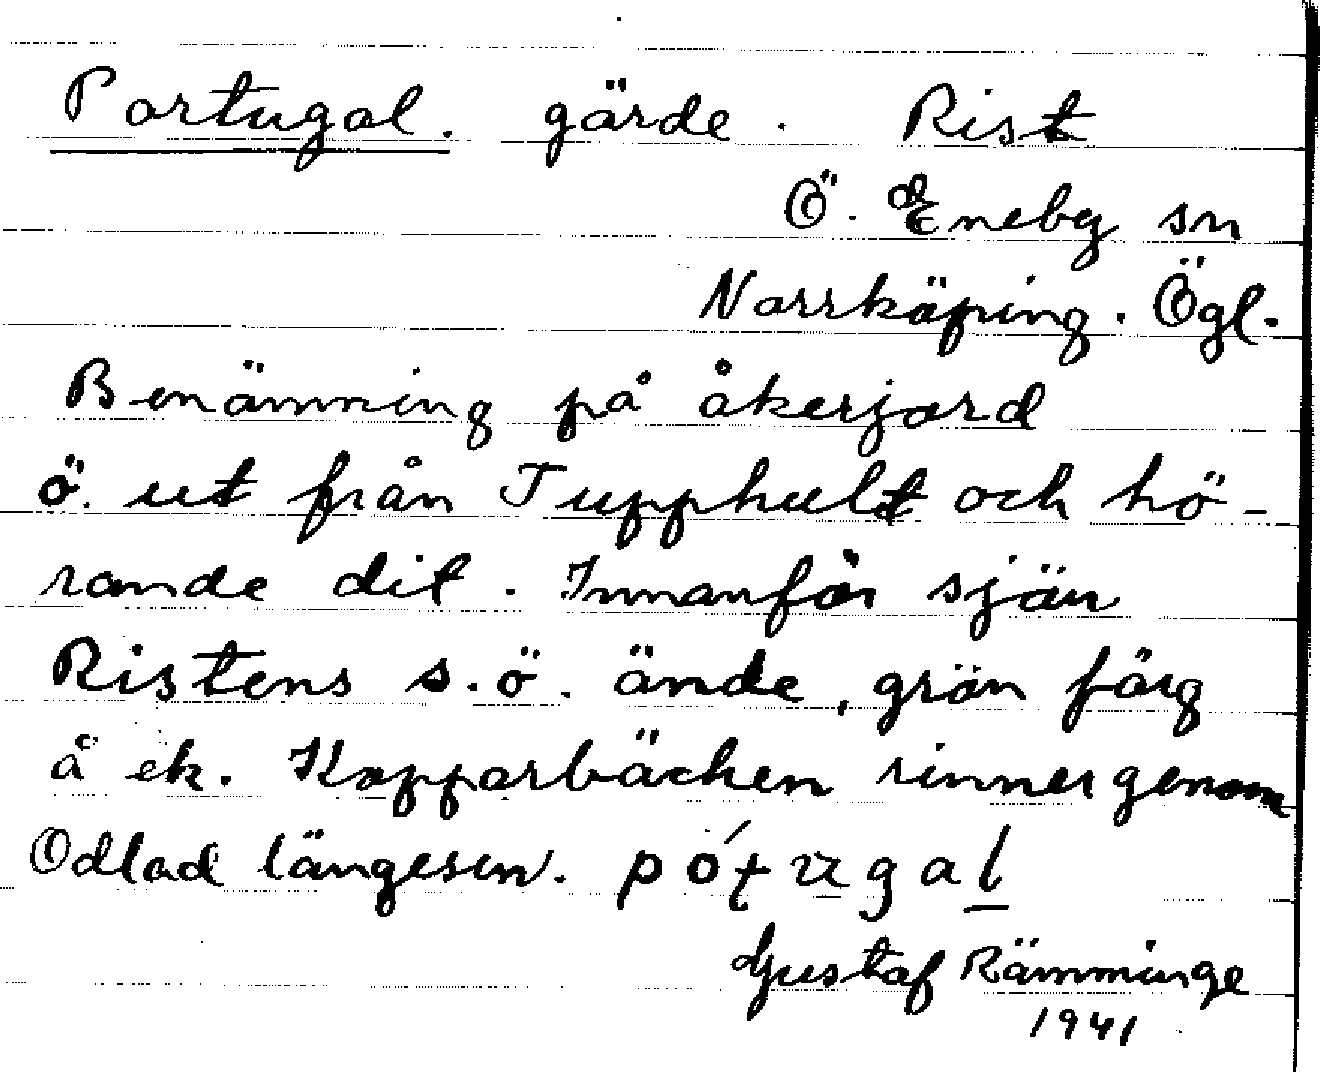 Portugal. gärde. Rist
Ö. Eneby sn
Norrköping. Ögl.
Benämning på åkerjord
ö. ut från Tupphult och hö-
rande dit. Innanför sjön
Ristens s.ö. ände, grön färg
å ek. Kopparbäcken rinner genom
Odlad längesen.
Gustaf Rämminge
1941